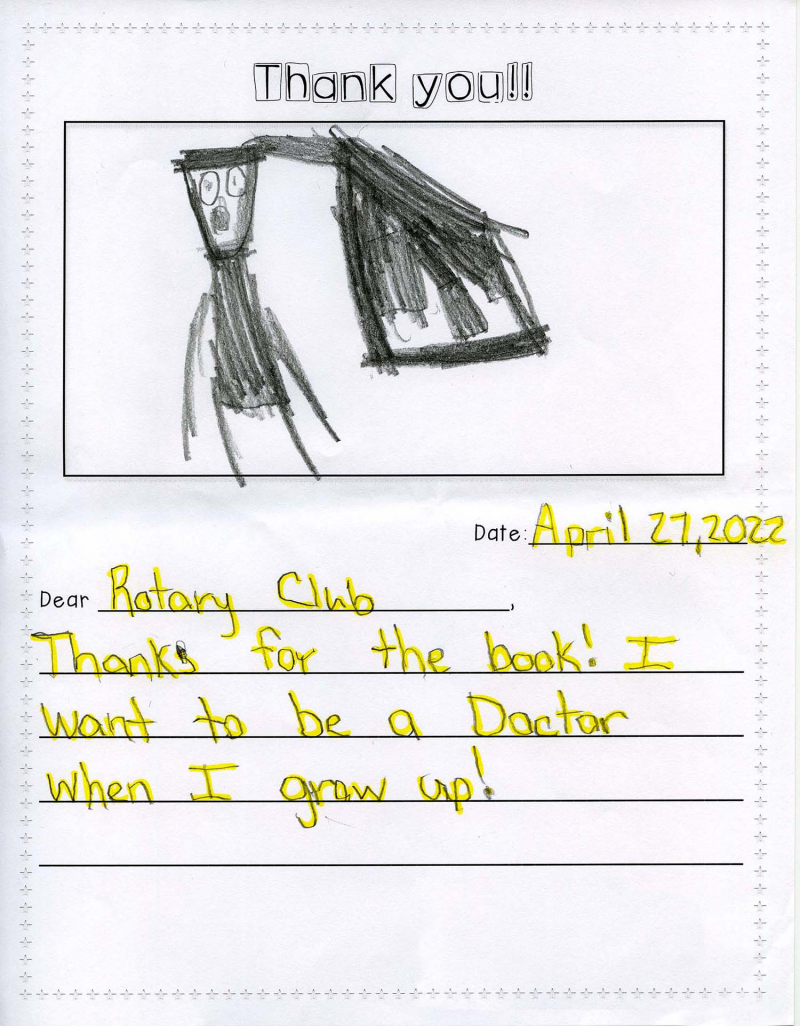 Thank you!!
Date: April 27, 2022
Dear Rotary Club,
Thanks for the book! I
want to be a Doctor
when I grow up!